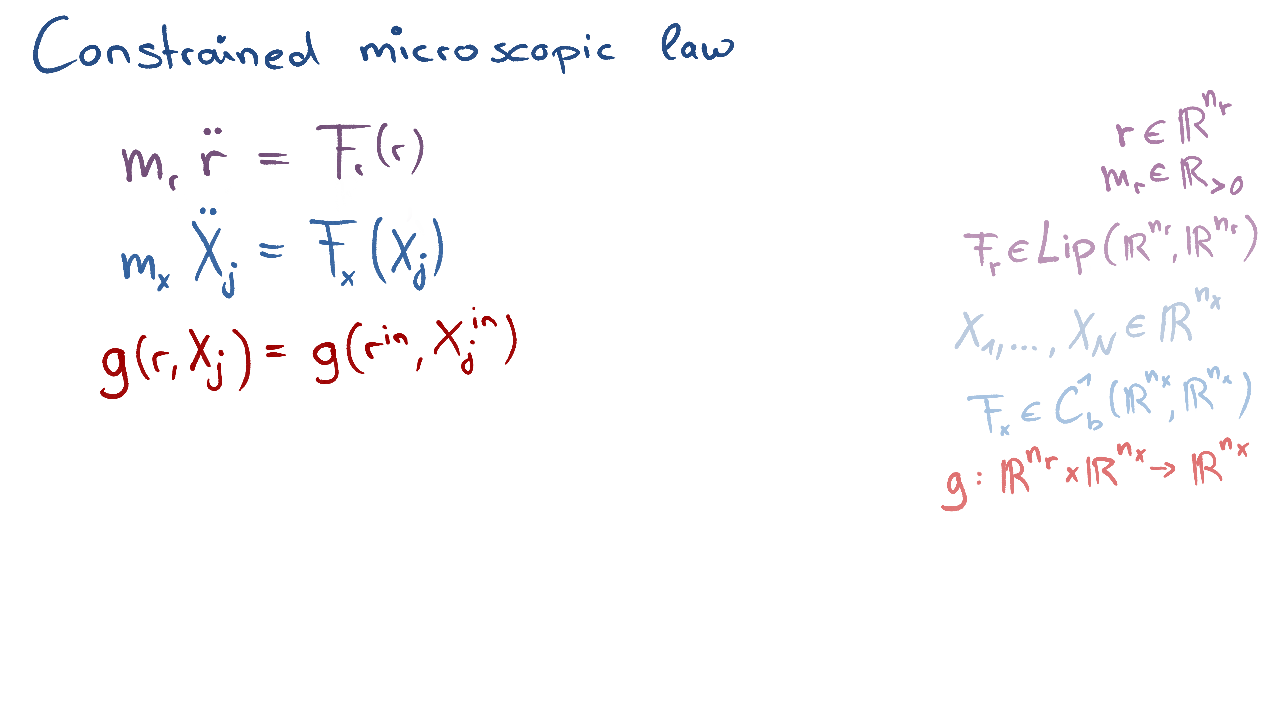 Constrained microscopic law
mᵣ r̈ = Fᵣ(r)
mₓ Ẍⱼ = Fₓ(Xⱼ)
g(r, Xⱼ) = g(rⁱⁿ, Xⱼⁱⁿ)
r ∈ ℝ^{n_r}
mᵣ ∈ ℝ_{>0}
Fᵣ ∈ Lip(ℝ^{n_r}, ℝ^{n_r})
X₁, ..., X_N ∈ ℝ^{n_x}
Fₓ ∈ C_b^1(ℝ^{n_x}, ℝ^{n_x})
g : ℝ^{n_r} × ℝ^{n_x} → ℝ^{n_x}